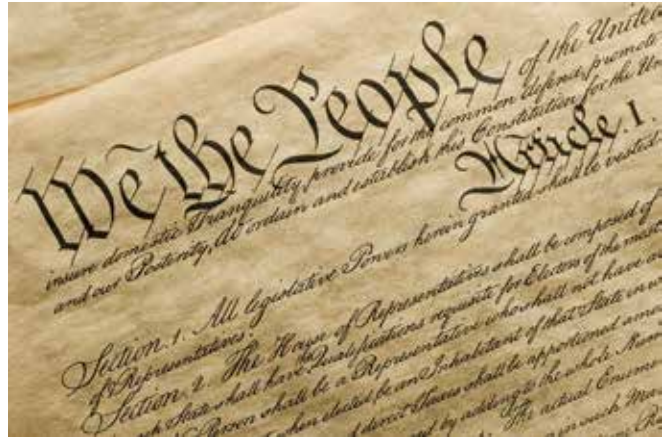 We the People of the United
insure domestic Tranquility, provide for the common defence, promote
and our Posterity, do ordain and establish this Constitution for the Un
Article. I.
Section. 1. All legislative Powers herein granted shall be vested
of Representatives.
Section. 2. The House of Representatives shall be composed of
State shall have Qualifications requisite for Electors of the most
Person shall be a Representative who shall not have
when elected be an Inhabitant of that State in
direct Taxes shall be apportioned
by adding to the whole Num
The actual Enume
in such